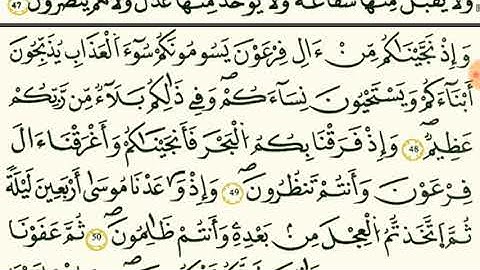 ولا يقبل منها شفاعة ولا يؤخذ منها عدل ولا هم ينصرون 47
وَإِذْ نَجَّيْنَاكُم مِّنْ ءَالِ فِرْعَوْنَ يَسُومُونَكُمْ سُوٓءَ اَ۬لْعَذَابِ يُذَبِّحُونَ
أَبْنَآءَكُمْ وَيَسْتَحْيُونَ نِسَآءَكُمْۖ وَفِي ذَٰلِكُم بَلَآءٌ مِّن رَّبِّكُمْ
عَظِيمٌۖ 48 وَإِذْ فَرَقْنَا بِكُمُ اُ۬لْبَحْرَ فَأَنجَيْنَاكُمْ وَأَغْرَقْنَا ءَالَ
فِرْعَوْنَ وَأَنتُمْ تَنظُرُونَۖ 49 وَإِذْ وَٰعَدْنَا مُوسَىٰ أَرْبَعِينَ لَيْلَةً
ثُمَّ اَ۪تَّخَذتُّمُ اُ۬لْعِجْلَ مِنۢ بَعْدِهِۦ وَأَنتُمْ ظَٰلِمُونَۖ 50 ثُمَّ عَفَوْنَا